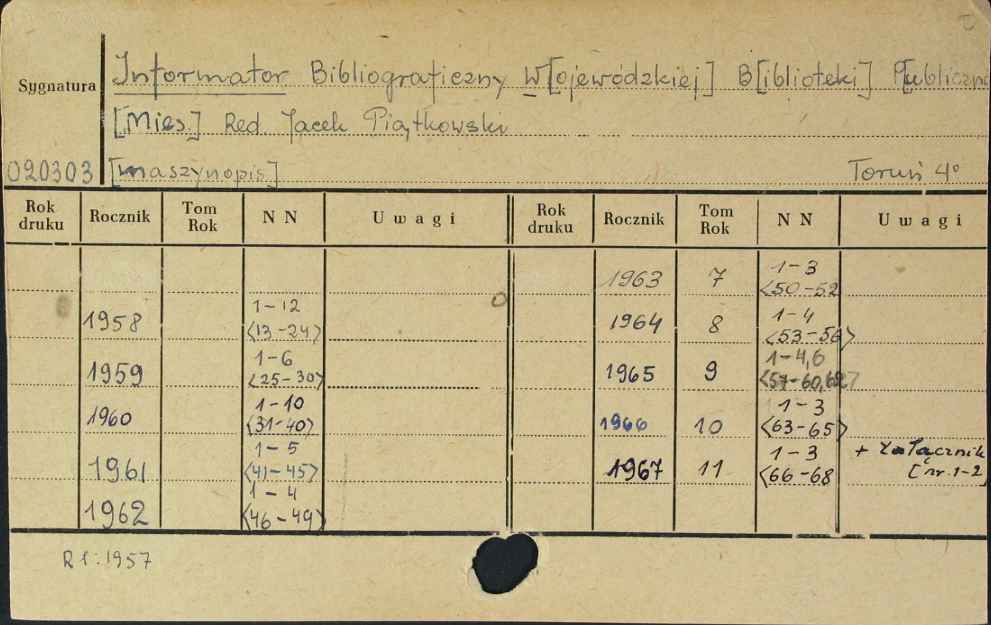 Sygnatura
Informator Bibliograficzny W[ojewódzkiej] B[iblioteki] P[ubliczn
[Mies.] Red. Jacek Piątkowski
020303 [maszynopis] Toruń 4°
Rok druku Rocznik Tom Rok NN Uwagi Rok druku Rocznik Tom Rok NN Uwagi
1963 7 1-3 <50-52
1958 1-12 <13-24> 1964 8 1-4 <53-56>
1959 1-6 <25-30> 1965 9 1-4,6 <57-60,62>
1960 1-10 <31-40> 1966 10 1-3 <63-65>
1961 1-5 <41-45> 1967 11 1-3 <66-68 + załącznik [nr. 1-2]
1962 1-4 <46-49>
R 1: 1957